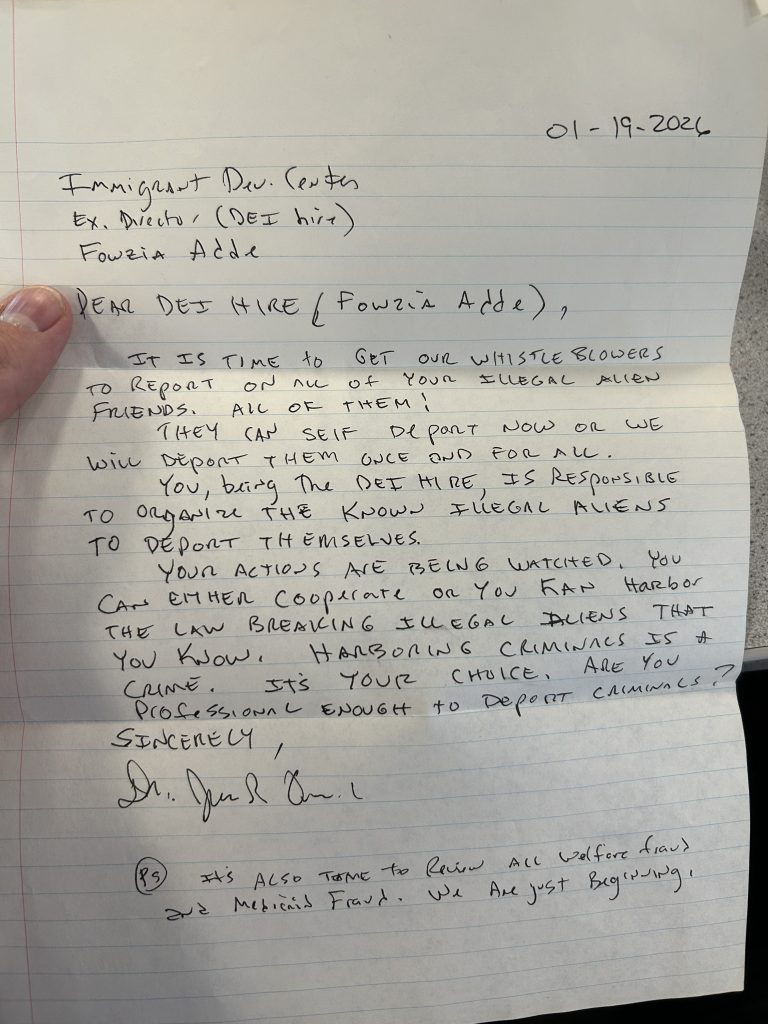 01-19-2026
Immigrant Dev. Center
Ex. Director (DEI hire)
Fowzia Adde
DEAR DEI HIRE (Fowzia Adde),
IT IS TIME to GET OUR WHISTLEBLOWERS
TO REPORT ON ALL OF YOUR ILLEGAL ALIEN
FRIENDS. ALL OF THEM!
THEY CAN SELF DEPORT NOW OR WE
WILL DEPORT THEM ONCE AND FOR ALL.
YOU, being The DEI HIRE, IS RESPONSIBLE
TO ORGANIZE THE KNOWN ILLEGAL ALIENS
TO DEPORT THEMSELVES.
YOUR ACTIONS ARE BEING WATCHED. YOU
CAN EITHER COOPERATE OR YOU KAN HARBOR
THE LAW BREAKING ILLEGAL ALIENS THAT
YOU KNOW. HARBORING CRIMINALS IS A
CRIME. IT'S YOUR CHOICE. ARE YOU
PROFESSIONAL ENOUGH to DEPORT CRIMINALS?
SINCERELY,
Dr.
PS It's ALSO TIME to Review ALL Welfare fraud
and Medicaid Fraud. We Are just Beginning.